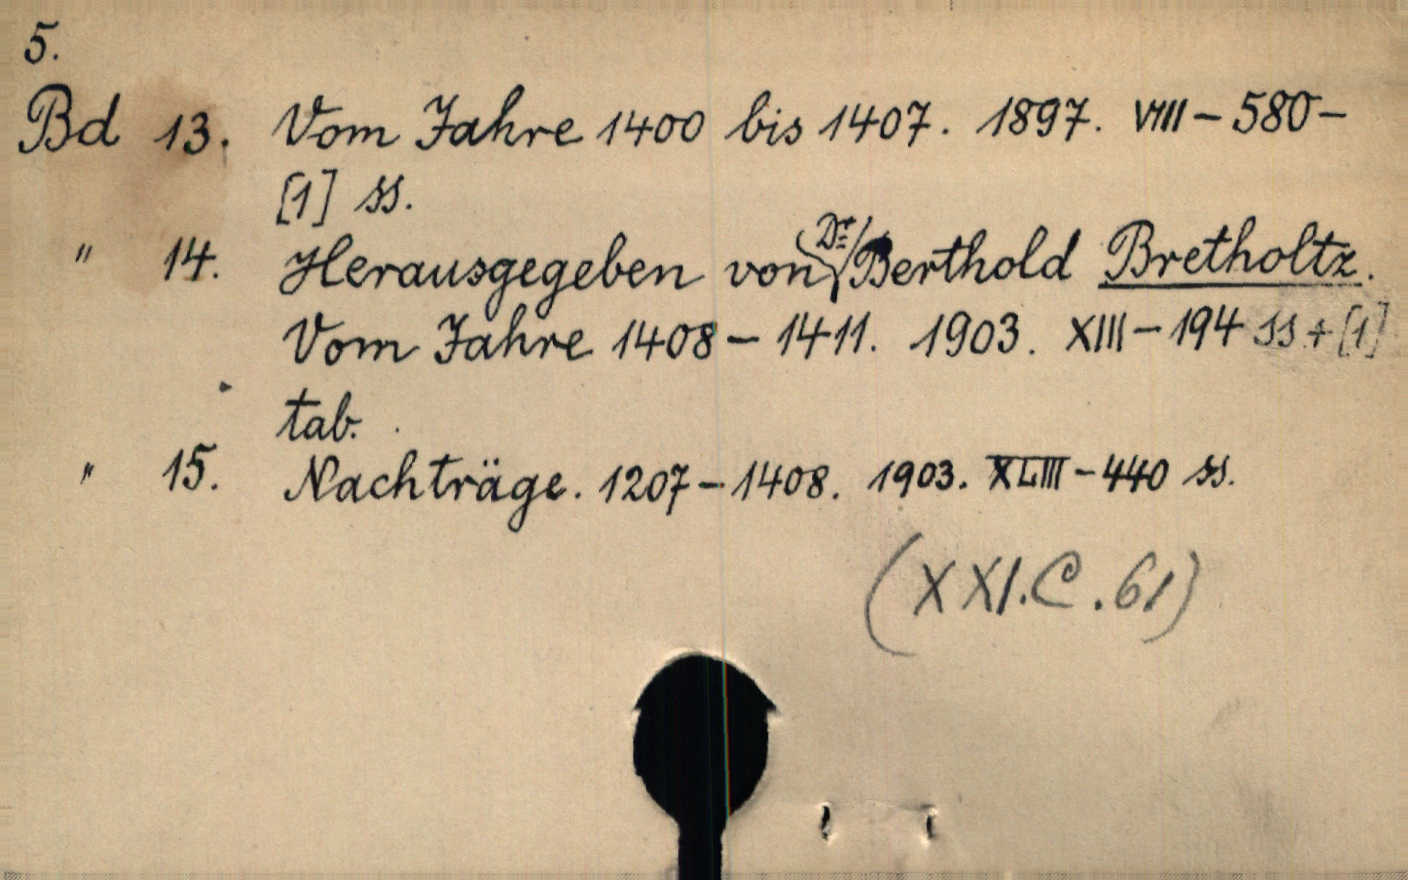 5.
Bd 13. Vom Jahre 1400 bis 1407. 1897. VIII – 580 –
[1] ss.
" 14. Herausgegeben von Dr Berthold Bretholtz.
Vom Jahre 1408 – 1411. 1903. XIII – 194 ss + [1]
tab.
" 15. Nachträge. 1207 – 1408. 1903. XLIII – 440 ss.
(XXI.C.61)